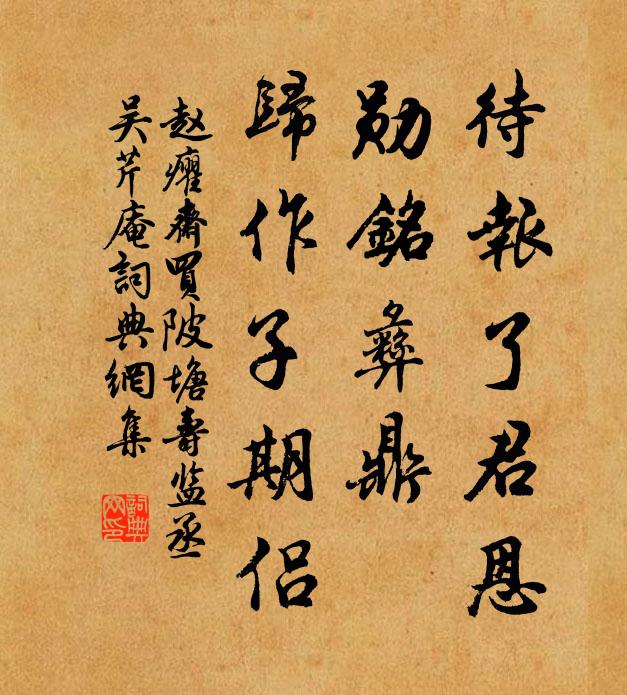 待報了君恩
勛銘彝鼎
歸作子期侶
赵癯齋買陂塘壽监丞
吴芹庵詞典網集
詞典网印